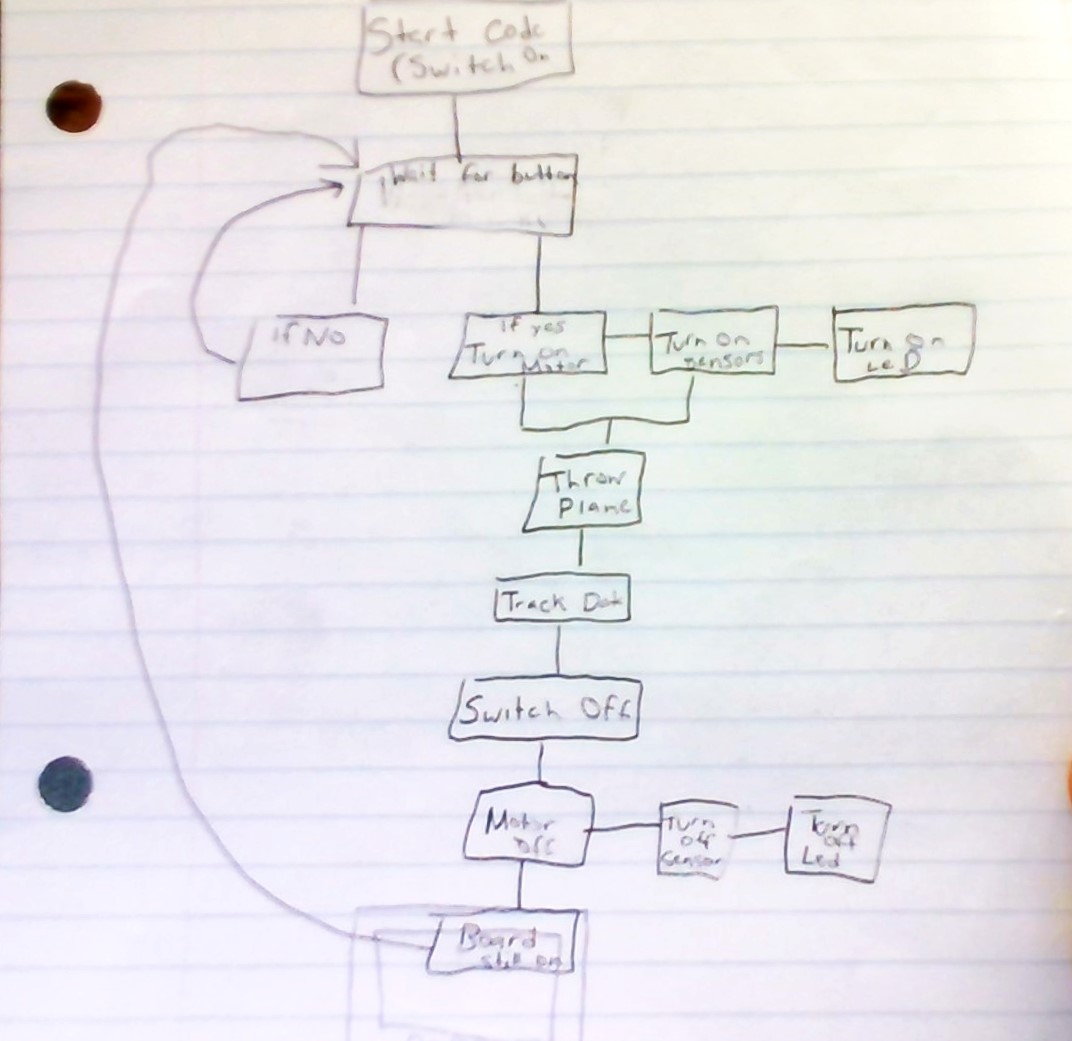 Start Code
(Switch On
Wait for button
if No
if yes
Turn on
Motor
Turn on
sensors
Turn on
LeD
Throw
Plane
Track Dat
Switch Off
Motor
Off
Turn
off
Sensor
Turn
off
Led
Board
still on